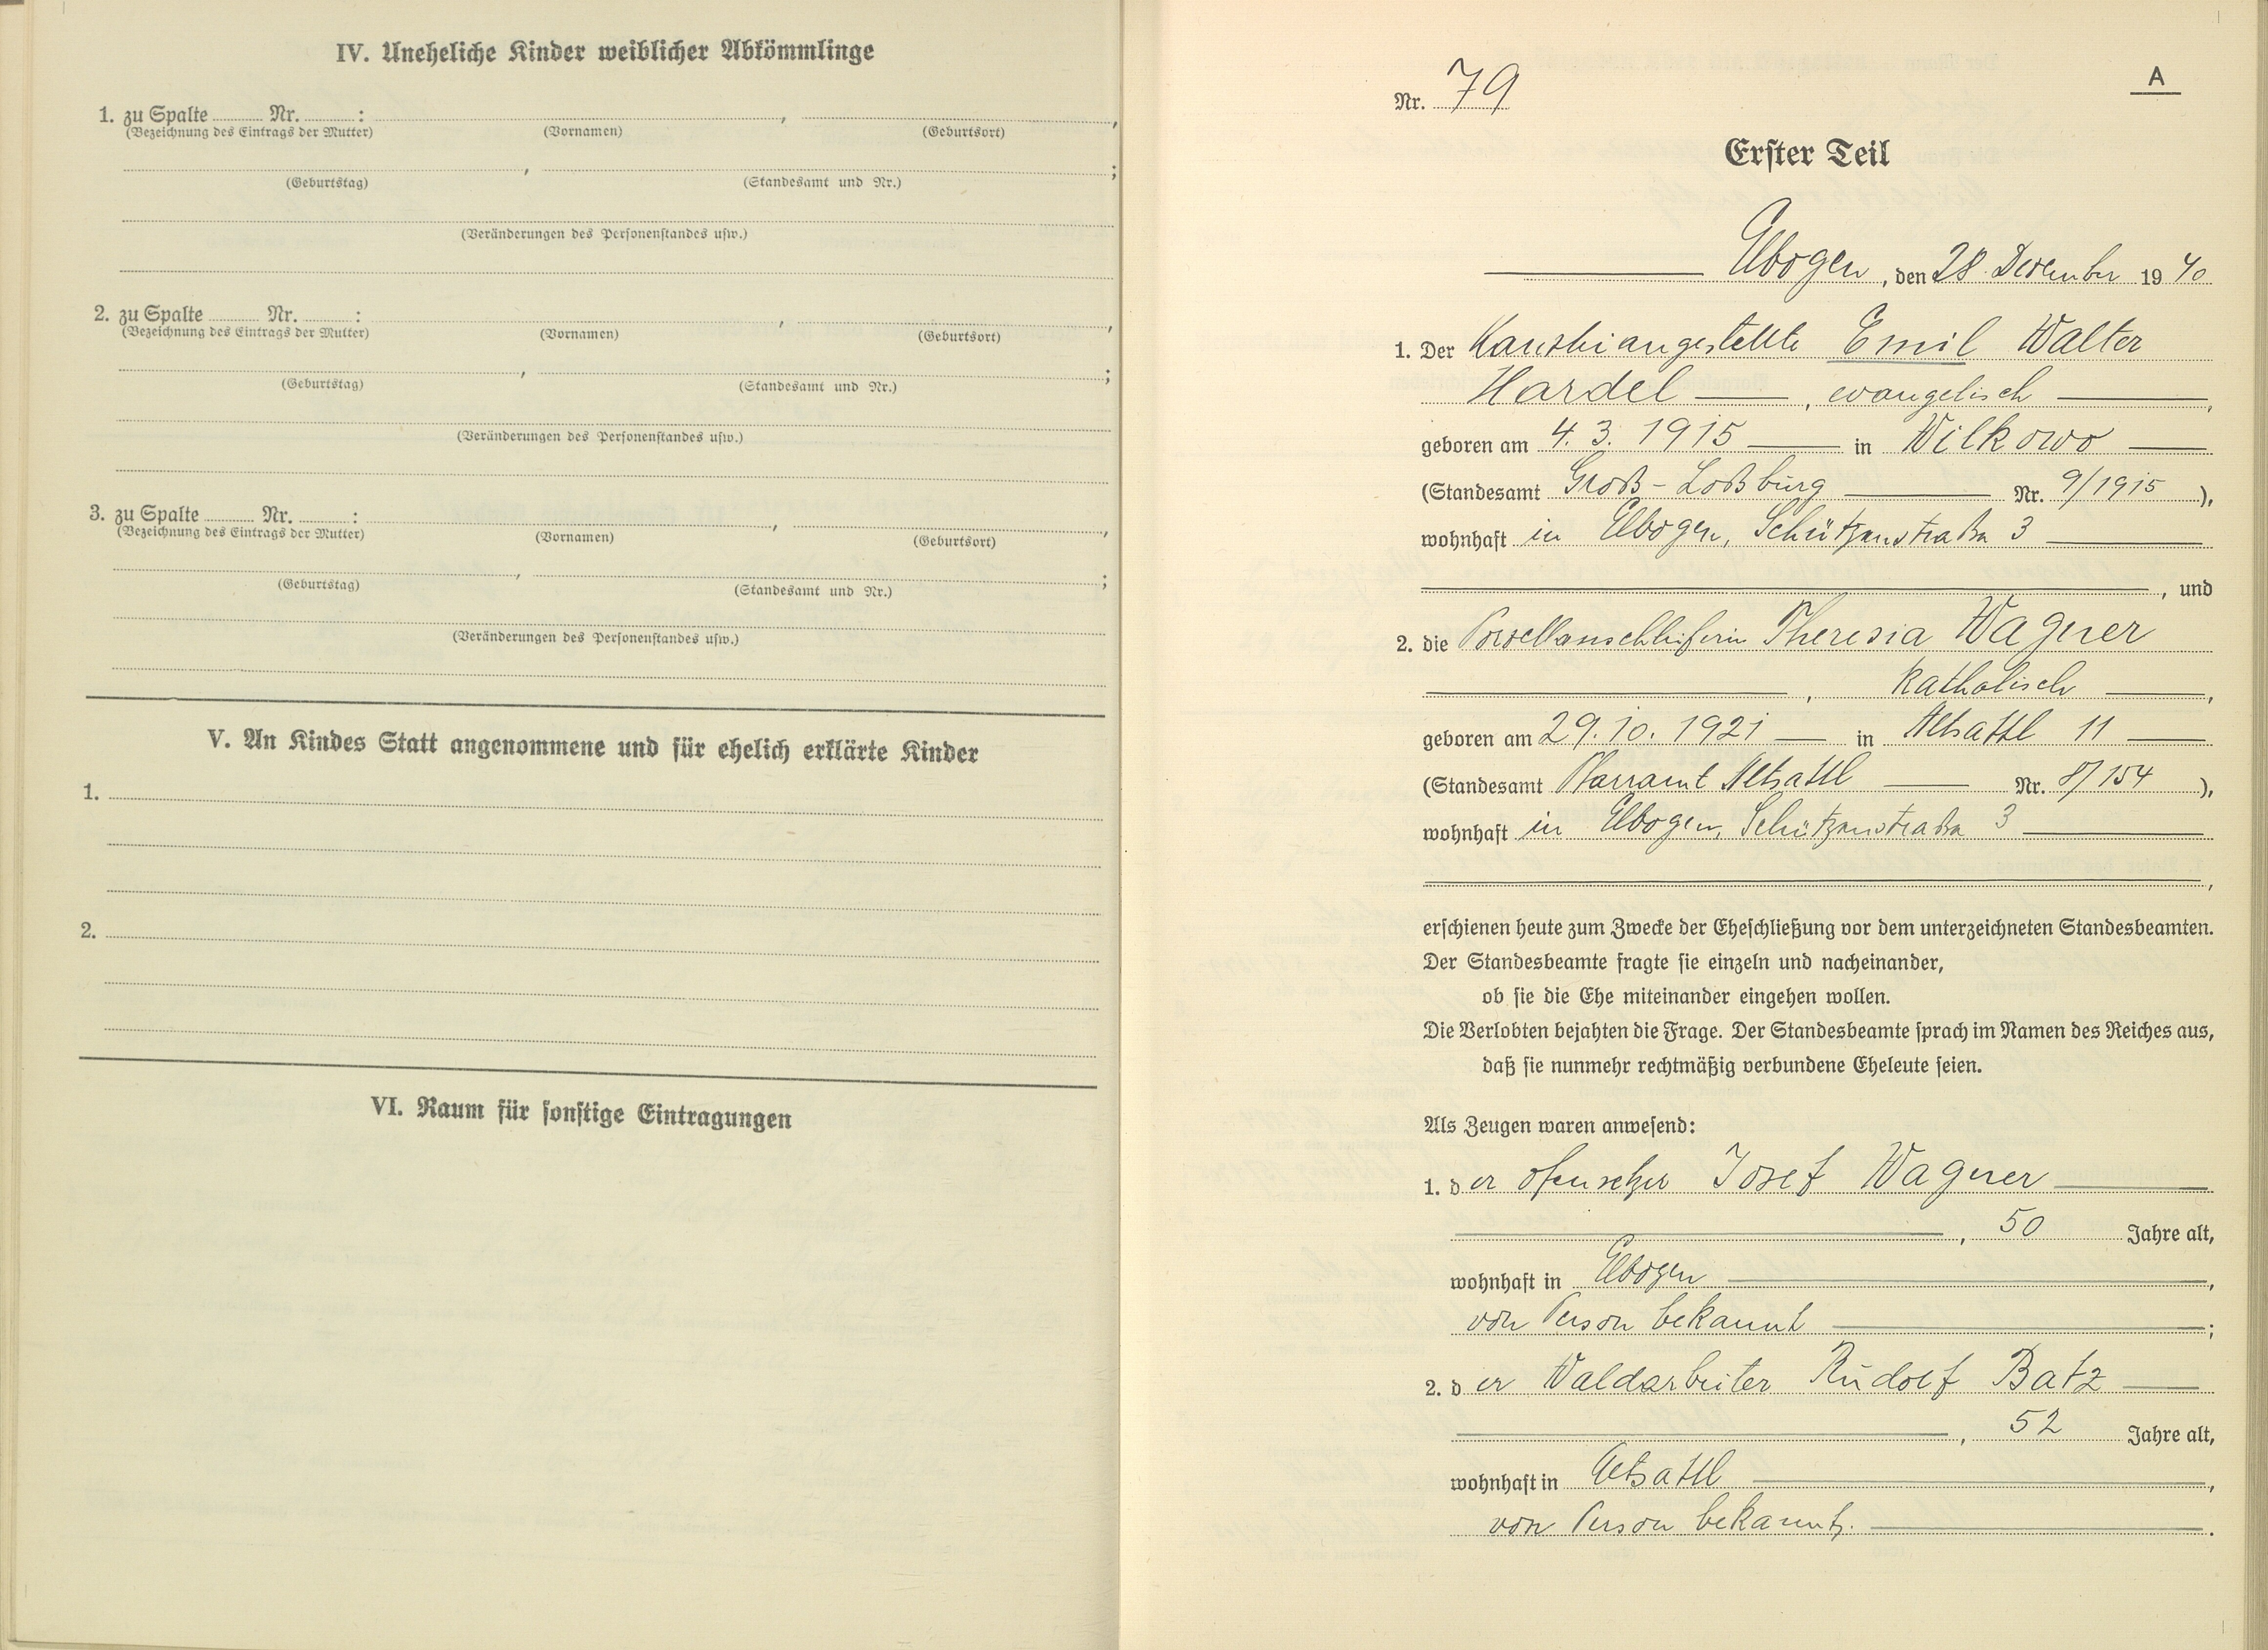 IV. Uneheliche Kinder weiblicher Abkömmlinge
1. zu Spalte ........ Nr. ........ : ........, ........,
(Bezeichnung des Eintrags der Mutter) (Vornamen) (Geburtsort)
........, ........;
(Geburtstag) (Standesamt und Nr.)
(Veränderungen des Personenstandes usw.)
2. zu Spalte ........ Nr. ........ : ........, ........,
(Bezeichnung des Eintrags der Mutter) (Vornamen) (Geburtsort)
........, ........;
(Geburtstag) (Standesamt und Nr.)
(Veränderungen des Personenstandes usw.)
3. zu Spalte ........ Nr. ........ : ........, ........,
(Bezeichnung des Eintrags der Mutter) (Vornamen) (Geburtsort)
........, ........;
(Geburtstag) (Standesamt und Nr.)
(Veränderungen des Personenstandes usw.)
V. An Kindes Statt angenommene und für ehelich erklärte Kinder
1.
2.
VI. Raum für sonstige Eintragungen
A
Nr. 79
Erster Teil
Elbogen, den 28. Dezember 1940
1. Der Kanzleiangestellte Emil Walter
Hardel, evangelisch,
geboren am 4. 3. 1915 in Wilkowo
(Standesamt Groß-Loßburg Nr. 9/1915),
wohnhaft in Elbogen, Schützenstraße 3
, und
2. die Porzellanschleiferin Theresia Wagner
, katholisch,
geboren am 29. 10. 1921 in Altsattl 11
(Standesamt Pfarramt Altsattl Nr. 8/154),
wohnhaft in Elbogen, Schützenstraße 3
,
erschienen heute zum Zwecke der Eheschließung vor dem unterzeichneten Standesbeamten.
Der Standesbeamte fragte sie einzeln und nacheinander,
ob sie die Ehe miteinander eingehen wollen.
Die Verlobten bejahten die Frage. Der Standesbeamte sprach im Namen des Reiches aus,
daß sie nunmehr rechtmäßig verbundene Eheleute seien.
Als Zeugen waren anwesend:
1. der Ofensetzer Josef Wagner
, 50 Jahre alt,
wohnhaft in Elbogen,
von Person bekannt;
2. der Waldarbeiter Rudolf Batz
, 52 Jahre alt,
wohnhaft in Altsattl,
von Person bekannt.